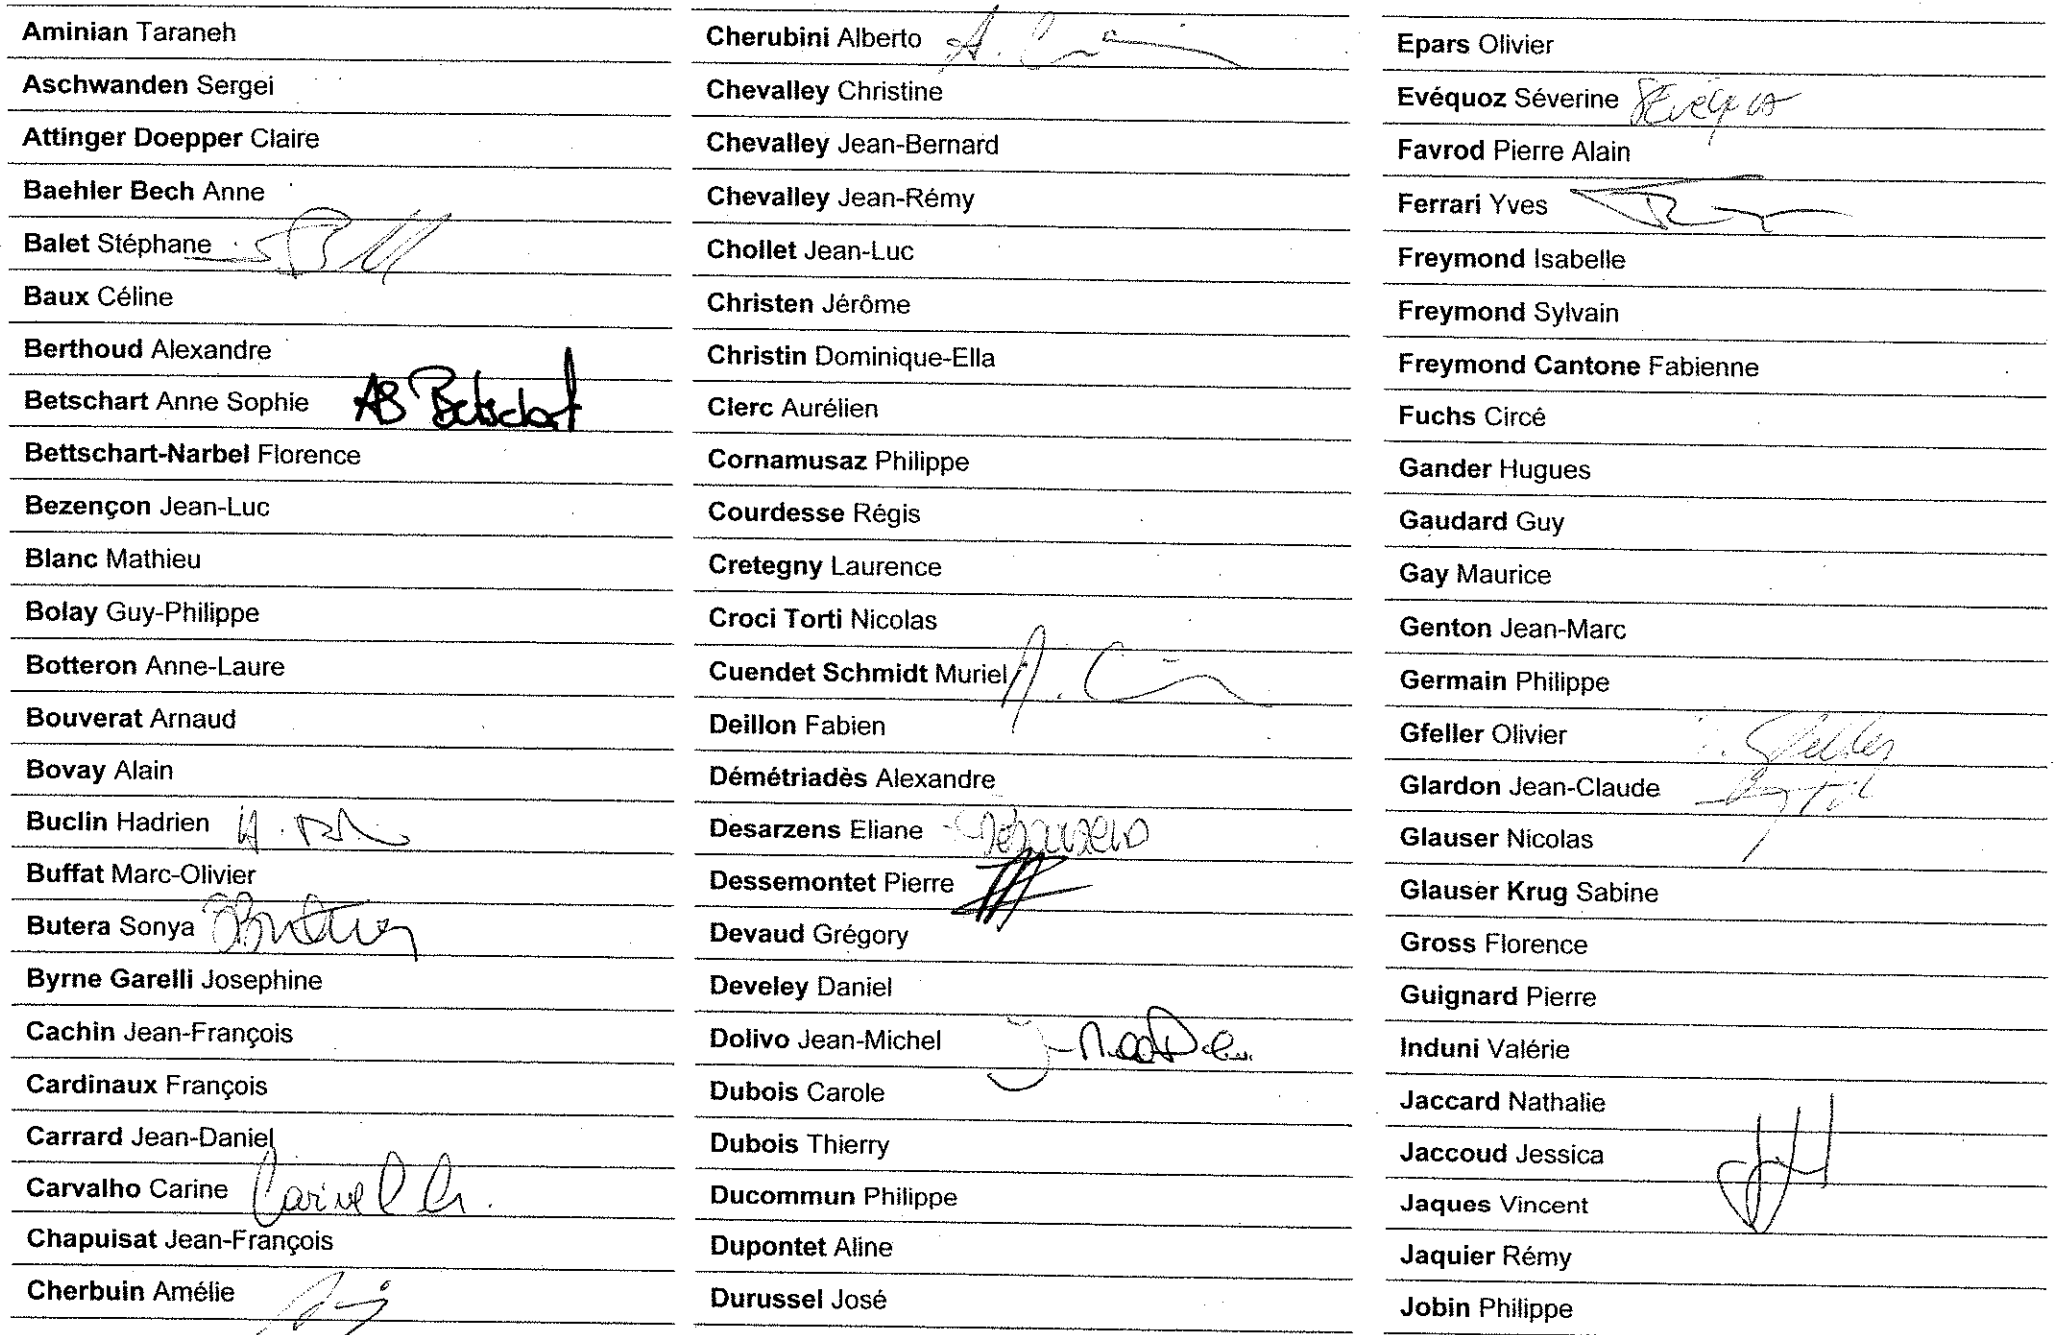 Aminian Taraneh
Aschwanden Sergei
Attinger Doepper Claire
Baehler Bech Anne
Balet Stéphane
Baux Céline
Berthoud Alexandre
Betschart Anne Sophie AS Betschart
Bettschart-Narbel Florence
Bezençon Jean-Luc
Blanc Mathieu
Bolay Guy-Philippe
Botteron Anne-Laure
Bouverat Arnaud
Bovay Alain
Buclin Hadrien
Buffat Marc-Olivier
Butera Sonya
Byrne Garelli Josephine
Cachin Jean-François
Cardinaux François
Carrard Jean-Daniel
Carvalho Carine Carine
Chapuisat Jean-François
Cherbuin Amélie
Cherubini Alberto
Chevalley Christine
Chevalley Jean-Bernard
Chevalley Jean-Rémy
Chollet Jean-Luc
Christen Jérôme
Christin Dominique-Ella
Clerc Aurélien
Cornamusaz Philippe
Courdesse Régis
Cretegny Laurence
Croci Torti Nicolas
Cuendet Schmidt Muriel
Deillon Fabien
Démétriadès Alexandre
Desarzens Eliane Desarzens
Dessemontet Pierre
Devaud Grégory
Develey Daniel
Dolivo Jean-Michel
Dubois Carole
Dubois Thierry
Ducommun Philippe
Dupontet Aline
Durussel José
Epars Olivier
Evéquoz Séverine SEvéquoz
Favrod Pierre Alain
Ferrari Yves
Freymond Isabelle
Freymond Sylvain
Freymond Cantone Fabienne
Fuchs Circé
Gander Hugues
Gaudard Guy
Gay Maurice
Genton Jean-Marc
Germain Philippe
Gfeller Olivier Gfeller
Glardon Jean-Claude
Glauser Nicolas
Glauser Krug Sabine
Gross Florence
Guignard Pierre
Induni Valérie
Jaccard Nathalie
Jaccoud Jessica
Jaques Vincent
Jaquier Rémy
Jobin Philippe